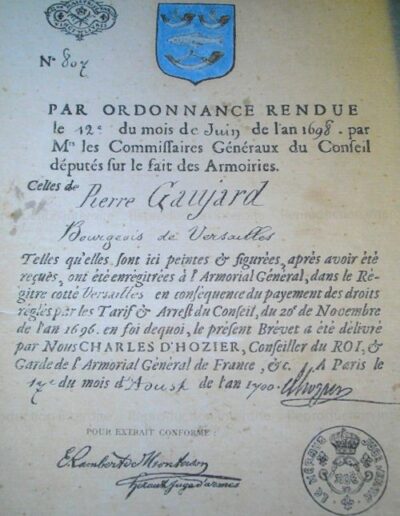 N° 807
PAR ORDONNANCE RENDUE
le 12e du mois de Juin de l'an 1698. par
Mrs les Commissaires Généraux du Conseil
députés sur le fait des Armoiries.
Celles de Pierre Gaujard
Bourgeois de Versailles
Telles qu'elles sont ici peintes & figurées, après avoir été
reçues, ont été enregitrées à l'Armorial Général, dans le Ré-
gitre cotté Versailles en conséquence du payement des droits
réglés par les Tarif & Arrest du Conseil, du 20e de Novembre
de l'an 1696. en foi de quoi, le présent Brévet a été délivré
par Nous CHARLES D'HOZIER, Conseiller du ROI, &
Garde de l'Armorial Général de France, &c. A Paris le
du mois d'Aoust de l'an 1700. d'hozier
POUR EXTRAIT CONFORME :
E. Lambert de